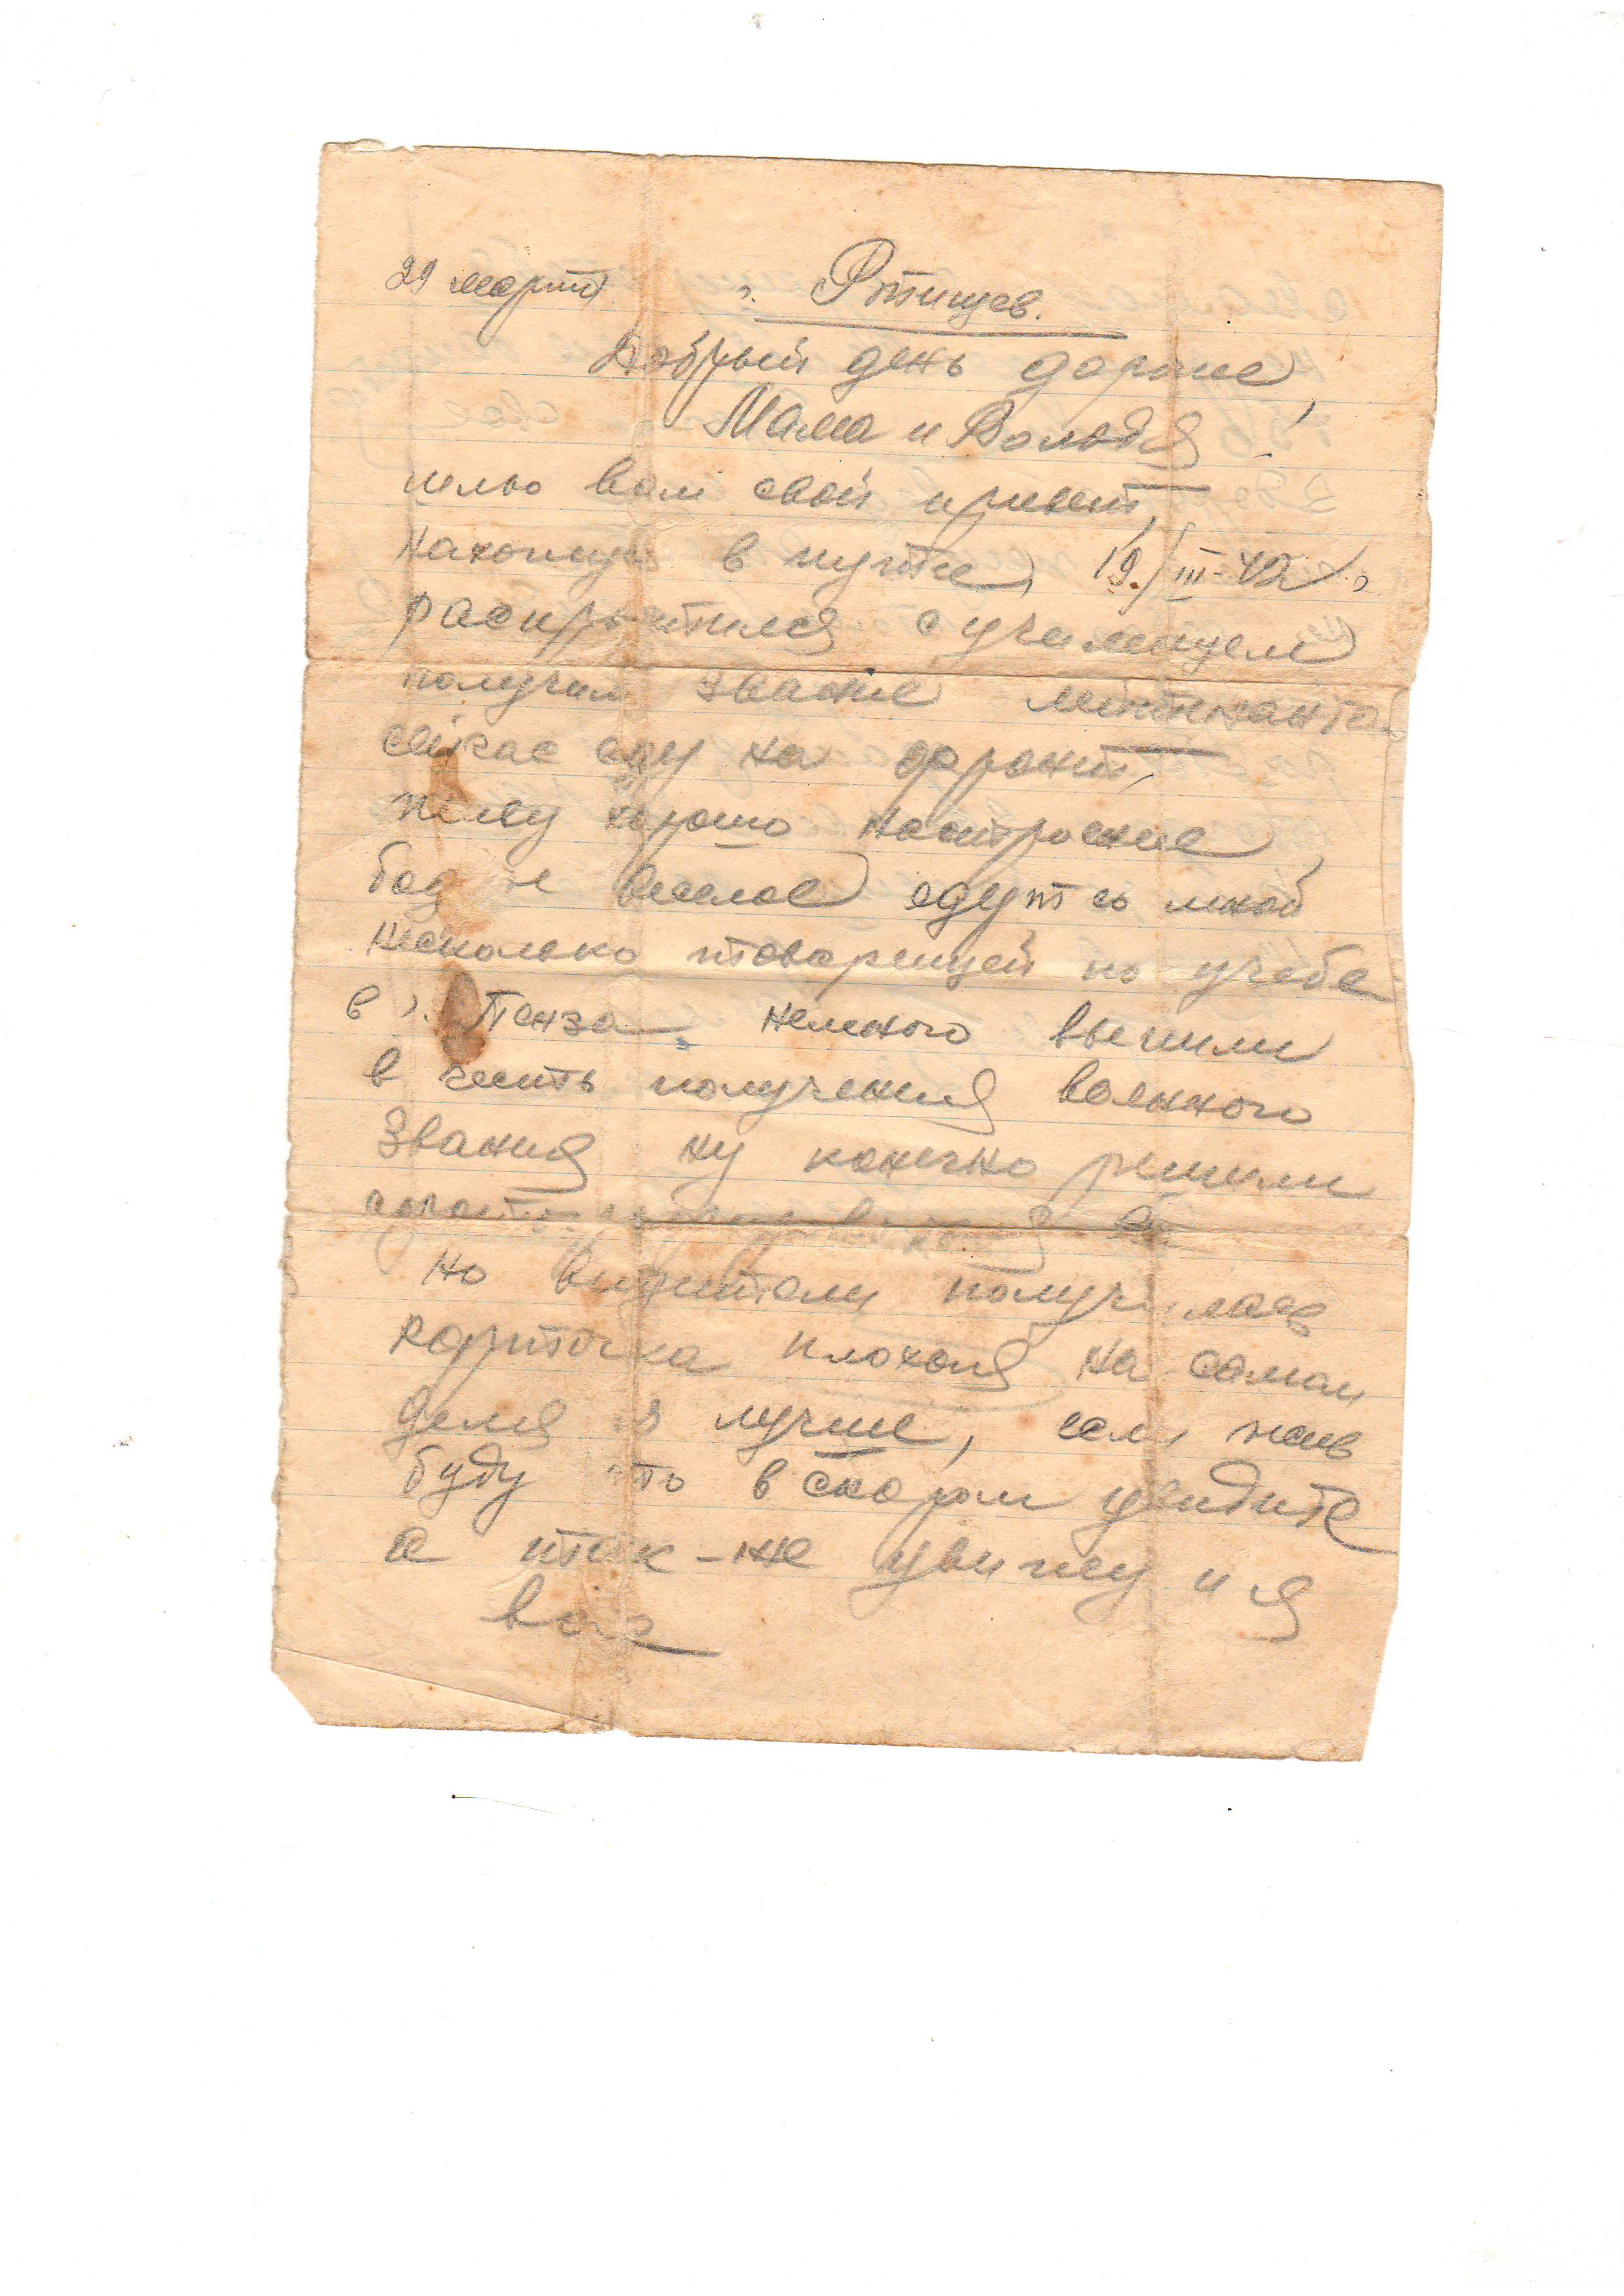 29 март г. Ртищев.
Добрый день дорогие,
Мама и Володя!
шлю вам свой привет,
нахожусь в путе, 19/III-42 г.
распрostился с училищем
получил звание лейтенанта
сейчас еду на фронт,
живу хорошо настроение,
бодрое веселое едут со мной
несколько товарищей по учебе
в г. Пенза немного выпили
в честь получения военного
звания ну конечно решили
но видители получилась
карточка плохоя на самом
деля я лучше, если жив
буду то в скором увидите
а так-же увижу и я
вас